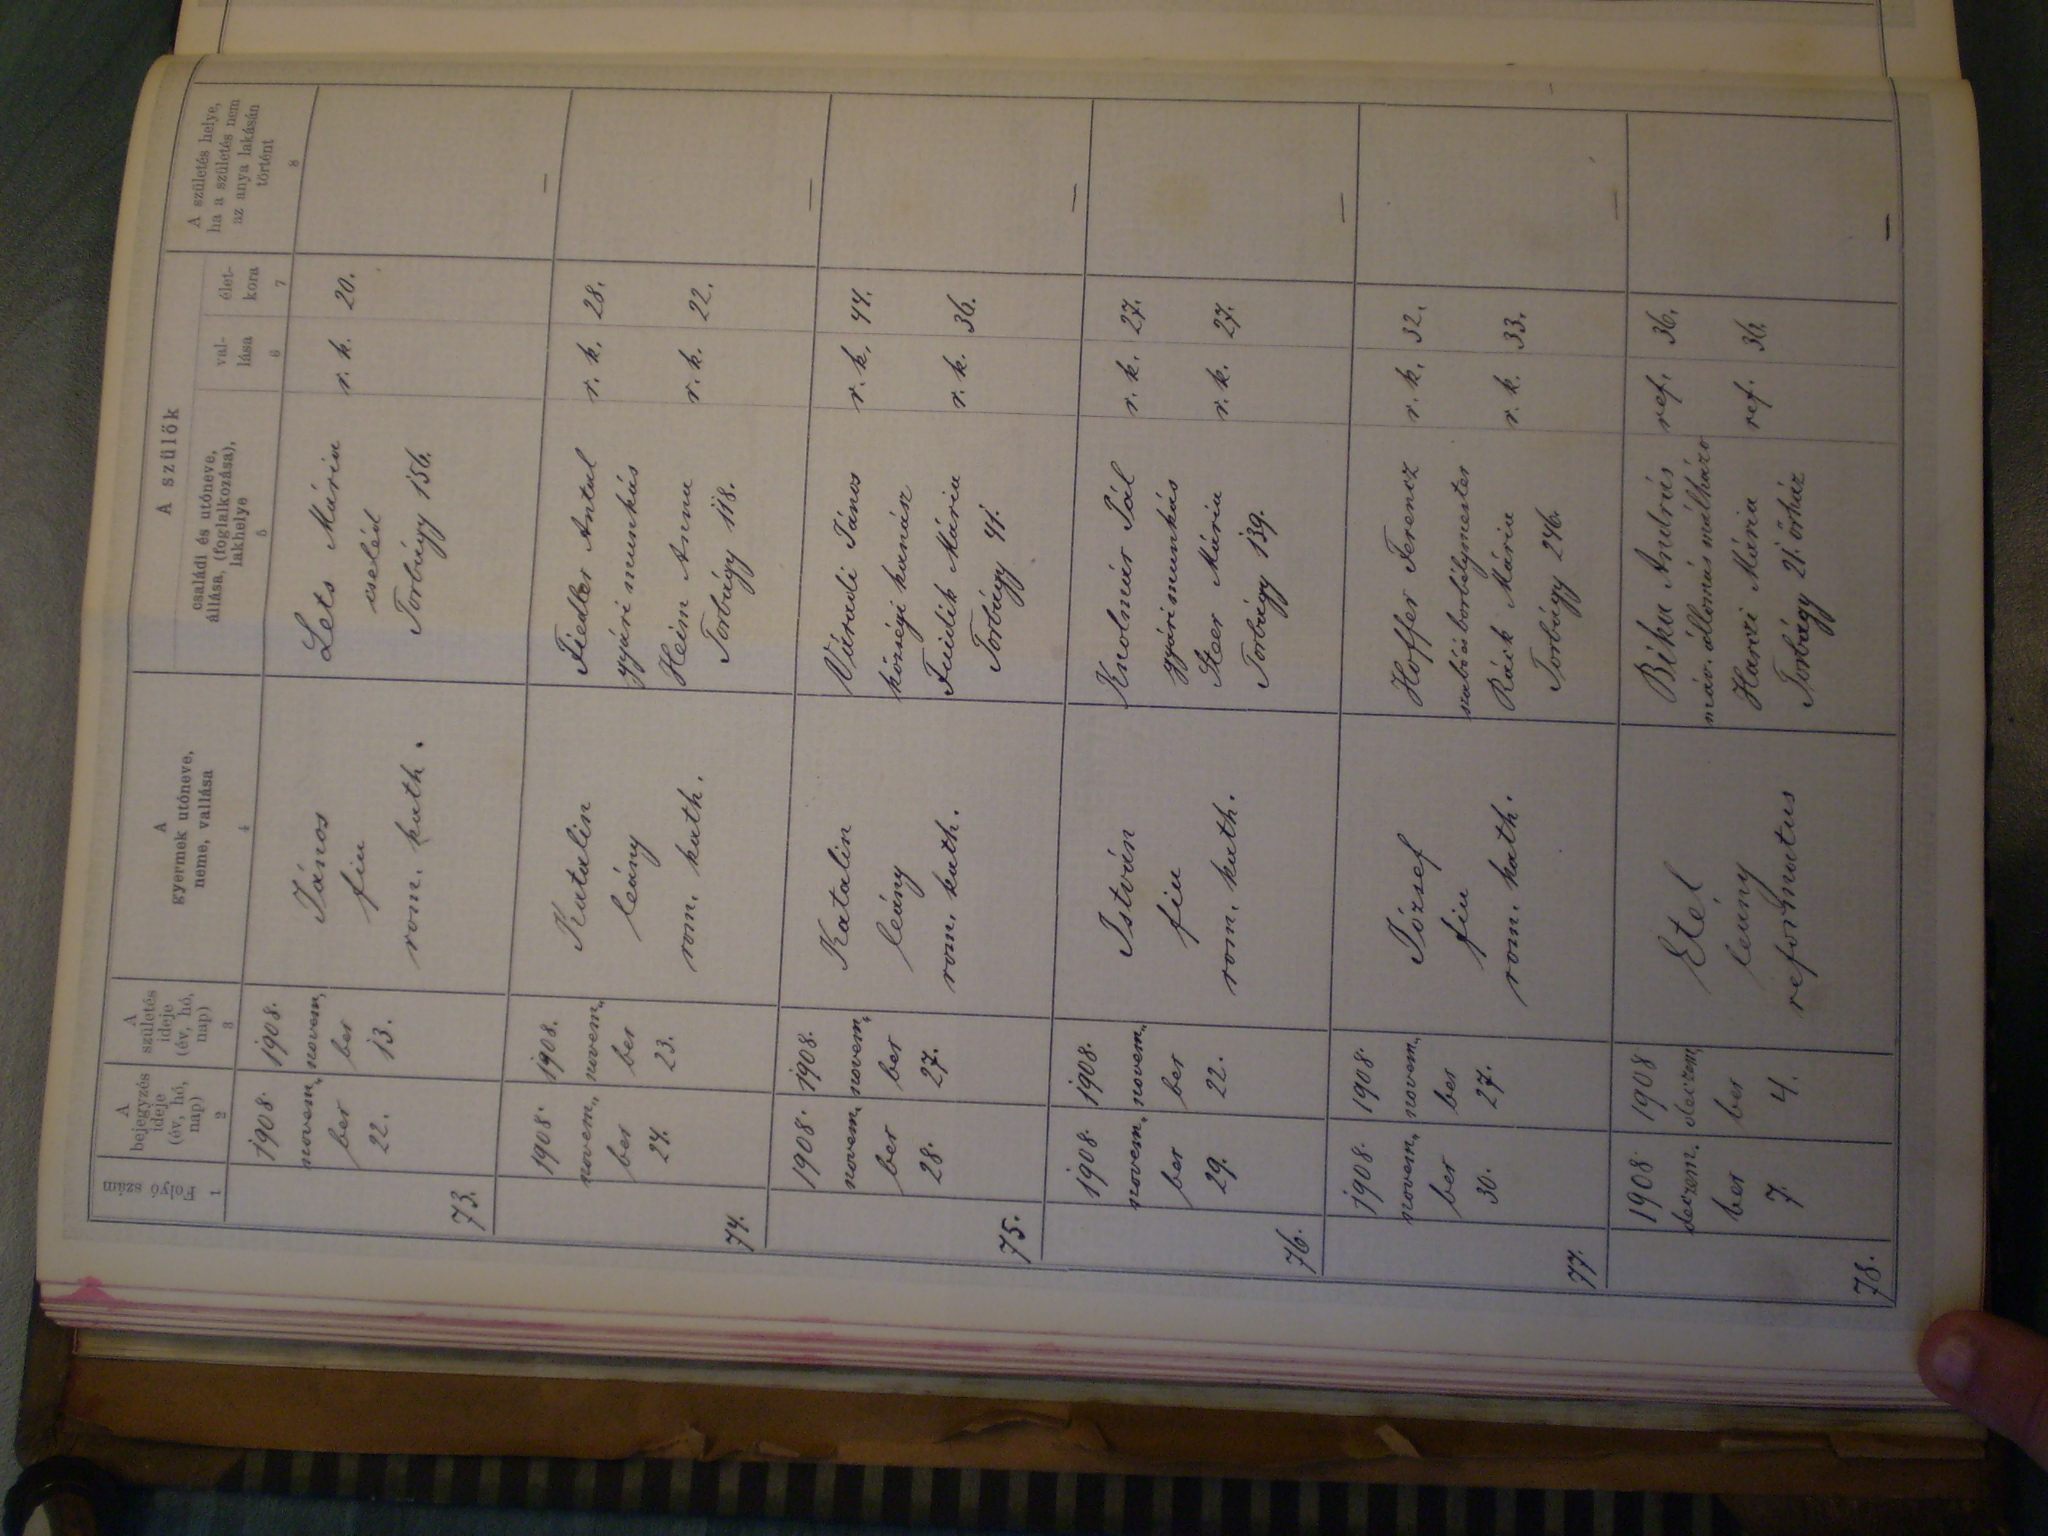 Folyó szám
1
A
bejegyzés
ideje
(év, hó,
nap)
2
A
születés
ideje
(év, hó,
nap)
3
A
gyermek utóneve,
neme, vallása
4
A szülők
családi és utóneve,
állása, (foglalkozása),
lakhelye
5
val-
lása
6
élet-
kora
7
A születés helye,
ha a születés nem
az anya lakásán
történt
8
73.
1908.
novem„
ber
22.
1908.
novem„
ber
13.
János
fiu
rom. kath.
Lets Mária
cseléd
Torbágy 156.
r. k.
20.
—
74.
1908.
novem„
ber
24.
1908.
novem„
ber
23.
Katalin
leány
rom. kath.
Fiedler Antal
gyári munkás
Heim Anna
Torbágy 118.
r. k. 28.
r. k. 22.
—
75.
1908.
novem„
ber
28.
1908.
novem„
ber
27.
Katalin
leány
rom. kath.
Váradi János
községi kanász
Mária
Torbágy 41.
r. k. 44.
r. k. 36.
—
76.
1908.
novem„
ber
29.
1908.
novem„
ber
22.
István
fiu
rom. kath.
Knolmár Pál
gyári munkás
Steer Mária
Torbágy 139.
r. k. 27.
r. k. 27.
—
77.
1908.
novem„
ber
30.
1908.
novem„
ber
27.
József
fiu
rom. kath.
Hoffer Ferencz
szabó és borbélymester
Mária
Torbágy 246.
r. k. 32.
r. k. 33.
—
78.
1908.
deczem„
ber
7.
1908
deczem„
ber
4.
Etél
leány
református
Bika András
máv. állomás málházó
Harczi Mária
Torbágy 21. őrház
ref. 36.
ref. 36.
—